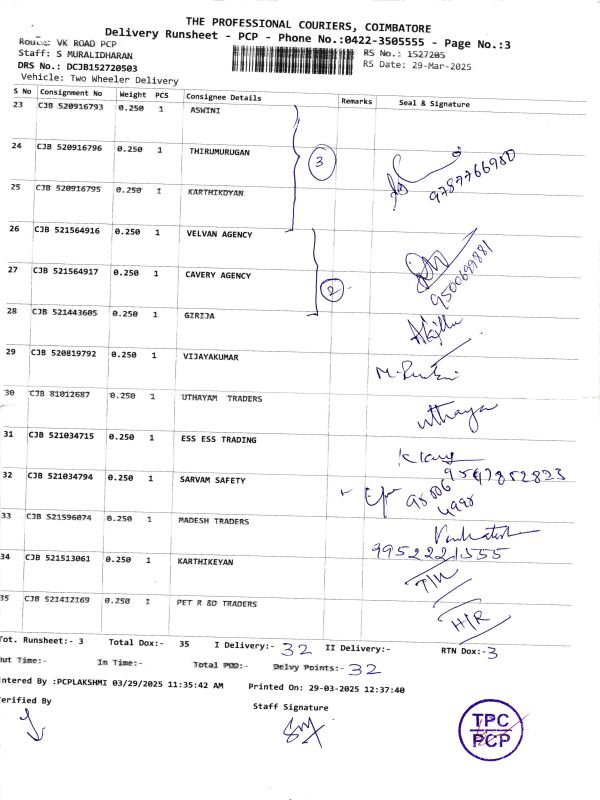 THE PROFESSIONAL COURIERS, COIMBATORE
Delivery Runsheet - PCP - Phone No.:0422-3505555 - Page No.:3
Route: VK ROAD PCP RS No.: 1527205
Staff: S MURALIDHARAN RS Date: 29-Mar-2025
DRS No.: DCJB152720503
Vehicle: Two Wheeler Delivery
S No Consignment No Weight PCS Consignee Details Remarks Seal & Signature
23 CJB 520916793 0.250 1 ASWINI
24 CJB 520916796 0.250 1 THIRUMURUGAN 3 9787766980
25 CJB 520916795 0.250 1 KARTHIKDYAN
26 CJB 521564916 0.250 1 VELVAN AGENCY
27 CJB 521564917 0.250 1 CAVERY AGENCY 2 9500699881
28 CJB 521443605 0.250 1 GIRIJA
29 CJB 520819792 0.250 1 VIJAYAKUMAR
30 CJB 81012687 0.250 1 UTHAYAM TRADERS uthaya
31 CJB 521034715 0.250 1 ESS ESS TRADING
32 CJB 521034794 0.250 1 SARVAM SAFETY
33 CJB 521596074 0.250 1 MADESH TRADERS 9952221555
34 CJB 521513061 0.250 1 KARTHIKEYAN
35 CJB 521412169 0.250 1 PET R &D TRADERS H/R
Tot. Runsheet:- 3 Total Dox:- 35 I Delivery:- 32 II Delivery:- RTN Dox:- 3
Out Time:- In Time:- Total POD:- Delvy Points:- 32
Entered By :PCPLAKSHMI 03/29/2025 11:35:42 AM Printed On: 29-03-2025 12:37:40
Verified By Staff Signature
TPC
PCP